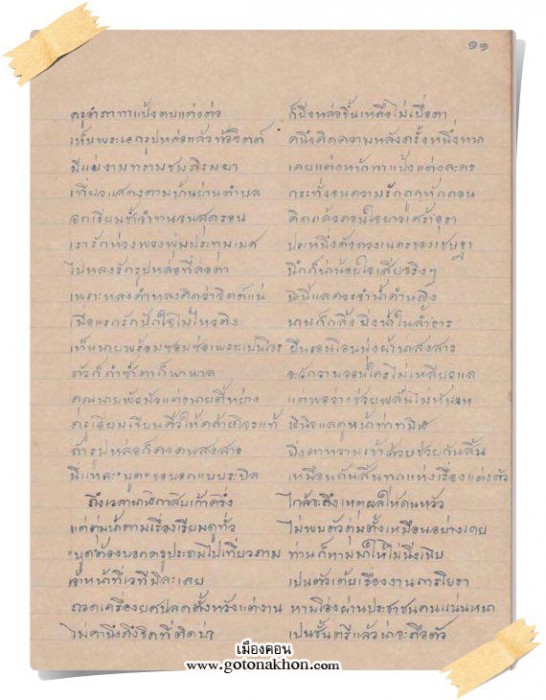 ๑๑
ครูจำภาทาแป้งตบแต่งตัว ก็ยิ่งหล่อขึ้นเหลือไม่เบื่อตา
เห็นพระเอกรูปหล่อแล้วหัวจิตต์ คนึงคิดความหลังครั้งหนึ่งหนา
มีแม่งามทรามชมภิรมยา เคยแต่งหน้าทาแป้งแต่งละคร
เที่ยวแสดงตามบ้านย่านตำบล กระทั่งจนความรักถูกหักถอน
อกเรียมช้ำจำทนจนสุดรอน คิดแล้วถอนใจยาวเศร้าอุรา
เรารักห่วงพวงพุ่มปทุมเมศ ประหนึ่งดังดวงเนตรของเชษฐา
ไปหลงรักรูปหล่อที่ลอตา นึกก็น่าน้อยใจเสียจริงๆ
เพราะหลงคำหลงคิดว่าจิตต์แน่ นี่นี้แลควรจำน้ำคำหญิง
เมื่อแรกรักปักใจไม่ไหวติง นานก็กลิ้ง
เห็นนายพร้อม ยืน
ตัวก็ดำซ้ำตาก็พาพาล
คุณนายหัวมัวแต่งนายสีห่าง แต่พอว่าช่วยพลันไม่ทัน
ครูเรียมเขียนคิ้วให้คล้ายโจรแท้ พินิจแลดูหน้าท่าทมิฬ
ถ้ารูปหล่อก็คงคนสงสาร ยิ่งตาหวานเข้าด้วยช่วยกันสิ้น
นี่แหละ"บูด"จอบอกแบบระบิล เหมือนกันสิ้นทุกแห่งเรื่องแต่งตัว
ถึงเวลานาฬิกาสิบเก้าครึ่ง ใกล้จะถึงเหตุผลให้คนหัว
แต่ตุ่มน้ำตามเรื่องเรียมดูทั่ว ไม่พบตัวตุ่มตั้งเหมือนอย่างเคย
"บูด"ต้องบอกครูประถมไปเที่ยวถาม ท่านก็หามมาให้ไม่นิ่งเฉย
เจ้าหน้าที่เวทีมีละเลย เป็นตัวเต้ยเรื่องงานการโยธา
ถอดเครื่องยศปลดตั้งหวังแต่งงาน หามโอ่งผ่านประชาชนคนแน่นหนา
ไม่คำนึงถึงจิตที่ติดบ่า เป็นชั้นตรีแล้วน่าจะถือตัว
เมืองคอน
www.gotonakhon.com